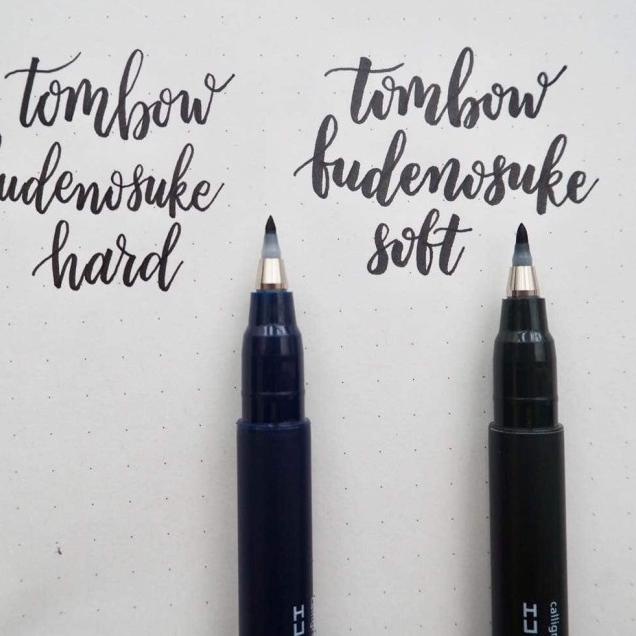 tombow
udenosuke
hard
tombow
fudenosuke
soft
エコ
エコ